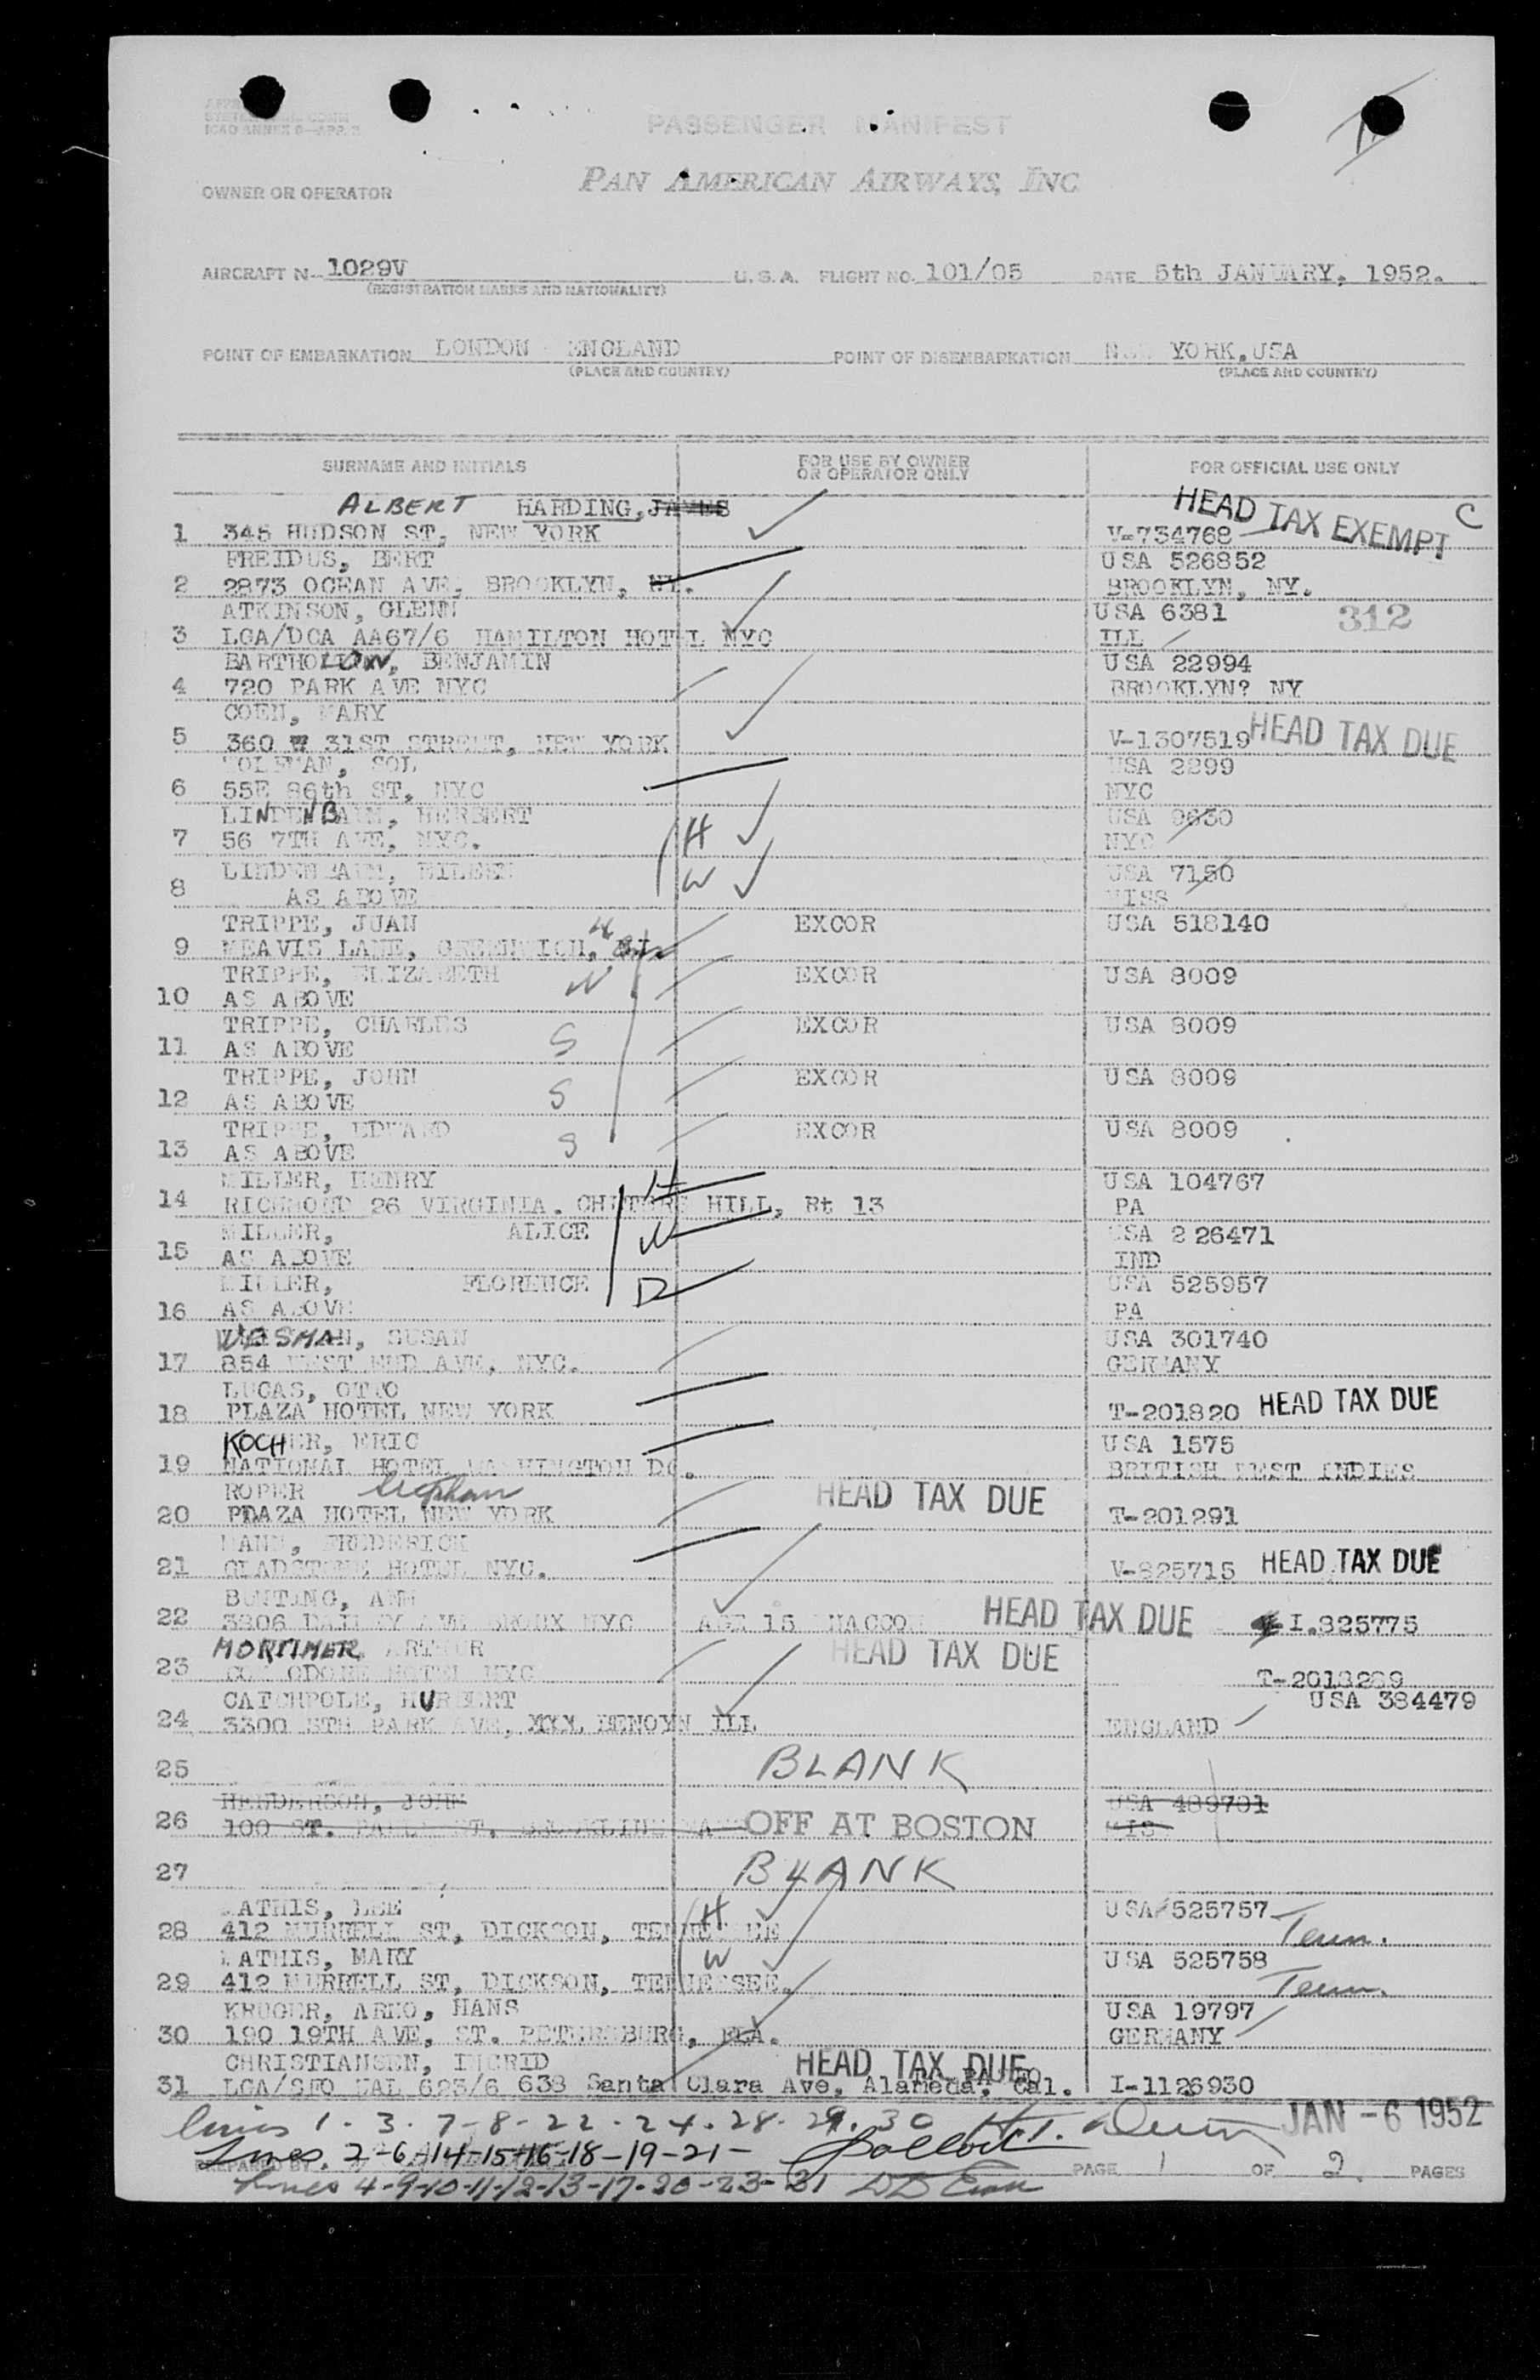 PASSENGER MANIFEST
ICAO ANNEX 9—APP. 3
PAN AMERICAN AIRWAYS, INC
OWNER OR OPERATOR
AIRCRAFT N- 1029V U.S.A. FLIGHT NO. 101/05 DATE 5th JANUARY, 1952.
(REGISTRATION MARKS AND NATIONALITY)
POINT OF EMBARKATION LONDON ENGLAND POINT OF DISEMBARKATION NEW YORK, USA
(PLACE AND COUNTRY) (PLACE AND COUNTRY)
SURNAME AND INITIALS FOR USE BY OWNER OR OPERATOR ONLY FOR OFFICIAL USE ONLY
ALBERT HARDING, JAMES HEAD TAX EXEMPT C
1 345 HUDSON ST, NEW YORK V-734768
FREIDUS, BERT USA 526852
2 2873 OCEAN AVE, BROOKLYN, NY. BROOKLYN, NY.
ATKINSON, GLENN USA 6381 312
3 LGA/DCA AA67/6 HAMILTON HOTEL NYC ILL
BARTHOLOW, BENJAMIN USA 22994
4 720 PARK AVE NYC BROOKLYN? NY
COEN, MARY
5 360 W 31ST STREET, NEW YORK V-1307519 HEAD TAX DUE
SOL USA 2299
6 55E 86th ST, NYC NYC
LINDENBAUM, HERBERT USA 9630
7 56 7TH AVE, NYC. H NYC
LINDENBAUM, EILEEN USA 7150
8 AS ABOVE W MISS
TRIPPE, JUAN H EXCOR USA 518140
9 MEAVIS LANE, GREENWICH, CT.
TRIPPE, ELIZABETH W EXCOR USA 8009
10 AS ABOVE
TRIPPE, CHARLES S EXCOR USA 8009
11 AS ABOVE
TRIPPE, JOHN S EXCOR USA 8009
12 AS ABOVE
TRIPPE, EDWARD S EXCOR USA 8009
13 AS ABOVE
MILLER, HENRY H USA 104767
14 RICHMOND 26 VIRGINIA. HILL, Rt 13 PA
MILLER, ALICE W USA 226471
15 AS ABOVE IND
MILLER, FLORENCE D USA 525957
16 AS ABOVE PA
SUSAN USA 301740
17 854 WEST END AVE, NYC. GERMANY
LUCAS, OTTO
18 PLAZA HOTEL NEW YORK T-201820 HEAD TAX DUE
KOCHER, ERIC USA 1575
19 NATIONAL HOTEL WASHINGTON DC. BRITISH WEST INDIES
ROPER HEAD TAX DUE
20 PLAZA HOTEL NEW YORK T-201291
MANN, FREDERICK
21 GLADSTONE HOTEL NYC. V-825715 HEAD TAX DUE
BUNTING, ANN
22 3806 AVE BRONX NYC AGE 15 HEAD TAX DUE I.825775
MORTIMER, ARTHUR HEAD TAX DUE
23 COMMODORE HOTEL NYC T-2018289
CATCHPOLE, HURBERT USA 384479
24 3300 5TH PARK AVE, XXX BENOYN ILL ENGLAND
25 BLANK
HENDERSON, JOHN USA 489701
26 100 ST. OFF AT BOSTON
27 BLANK
MATHIS, LEE H USA 525757
28 412 MURRELL ST, DICKSON, TENNESSEE Tenn.
MATHIS, MARY W USA 525758
29 412 MURRELL ST, DICKSON, TENNESSEE. Tenn.
KRUGER, ARNO, HANS USA 19797
30 190 19TH AVE, ST. PETERSBURG, FLA. GERMANY
CHRISTIANSEN, INGRID HEAD TAX DUE
31 LGA/SFO UAL 623/6 638 Santa Clara Ave, Alameda, Cal. I-1126930
lines 1-3-7-8-22-24-28-29-30 JAN -6 1952
Lines 2-6-14-15-16-18-19-21-
PREPARED BY PAGE 1 OF 2 PAGES
Lines 4-9-10-11-12-13-17-20-23-31